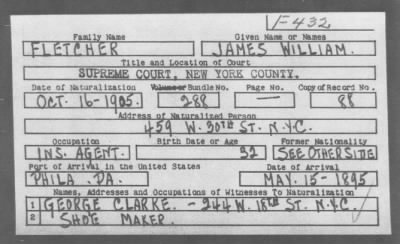 F-432
Family Name Given Name or Names
FLETCHER JAMES WILLIAM.
Title and Location of Court
SUPREME COURT, NEW YORK COUNTY.
Date of Naturalization Volume or Bundle No. Page No. Copy of Record No.
OCT. 16-1905. 288 — 88
Address of Naturalized Person
459 W. 30TH ST. N.Y.C.
Occupation Birth Date or Age Former Nationality
INS. AGENT. 32 SEE OTHER SIDE
Port of Arrival in the United States Date of Arrival
PHILA. PA. MAY. 15-1895
Names, Addresses and Occupations of Witnesses To Naturalization
1 GEORGE CLARKE. - 244 W. 18TH ST. N.Y.C.
2 SHOE MAKER.